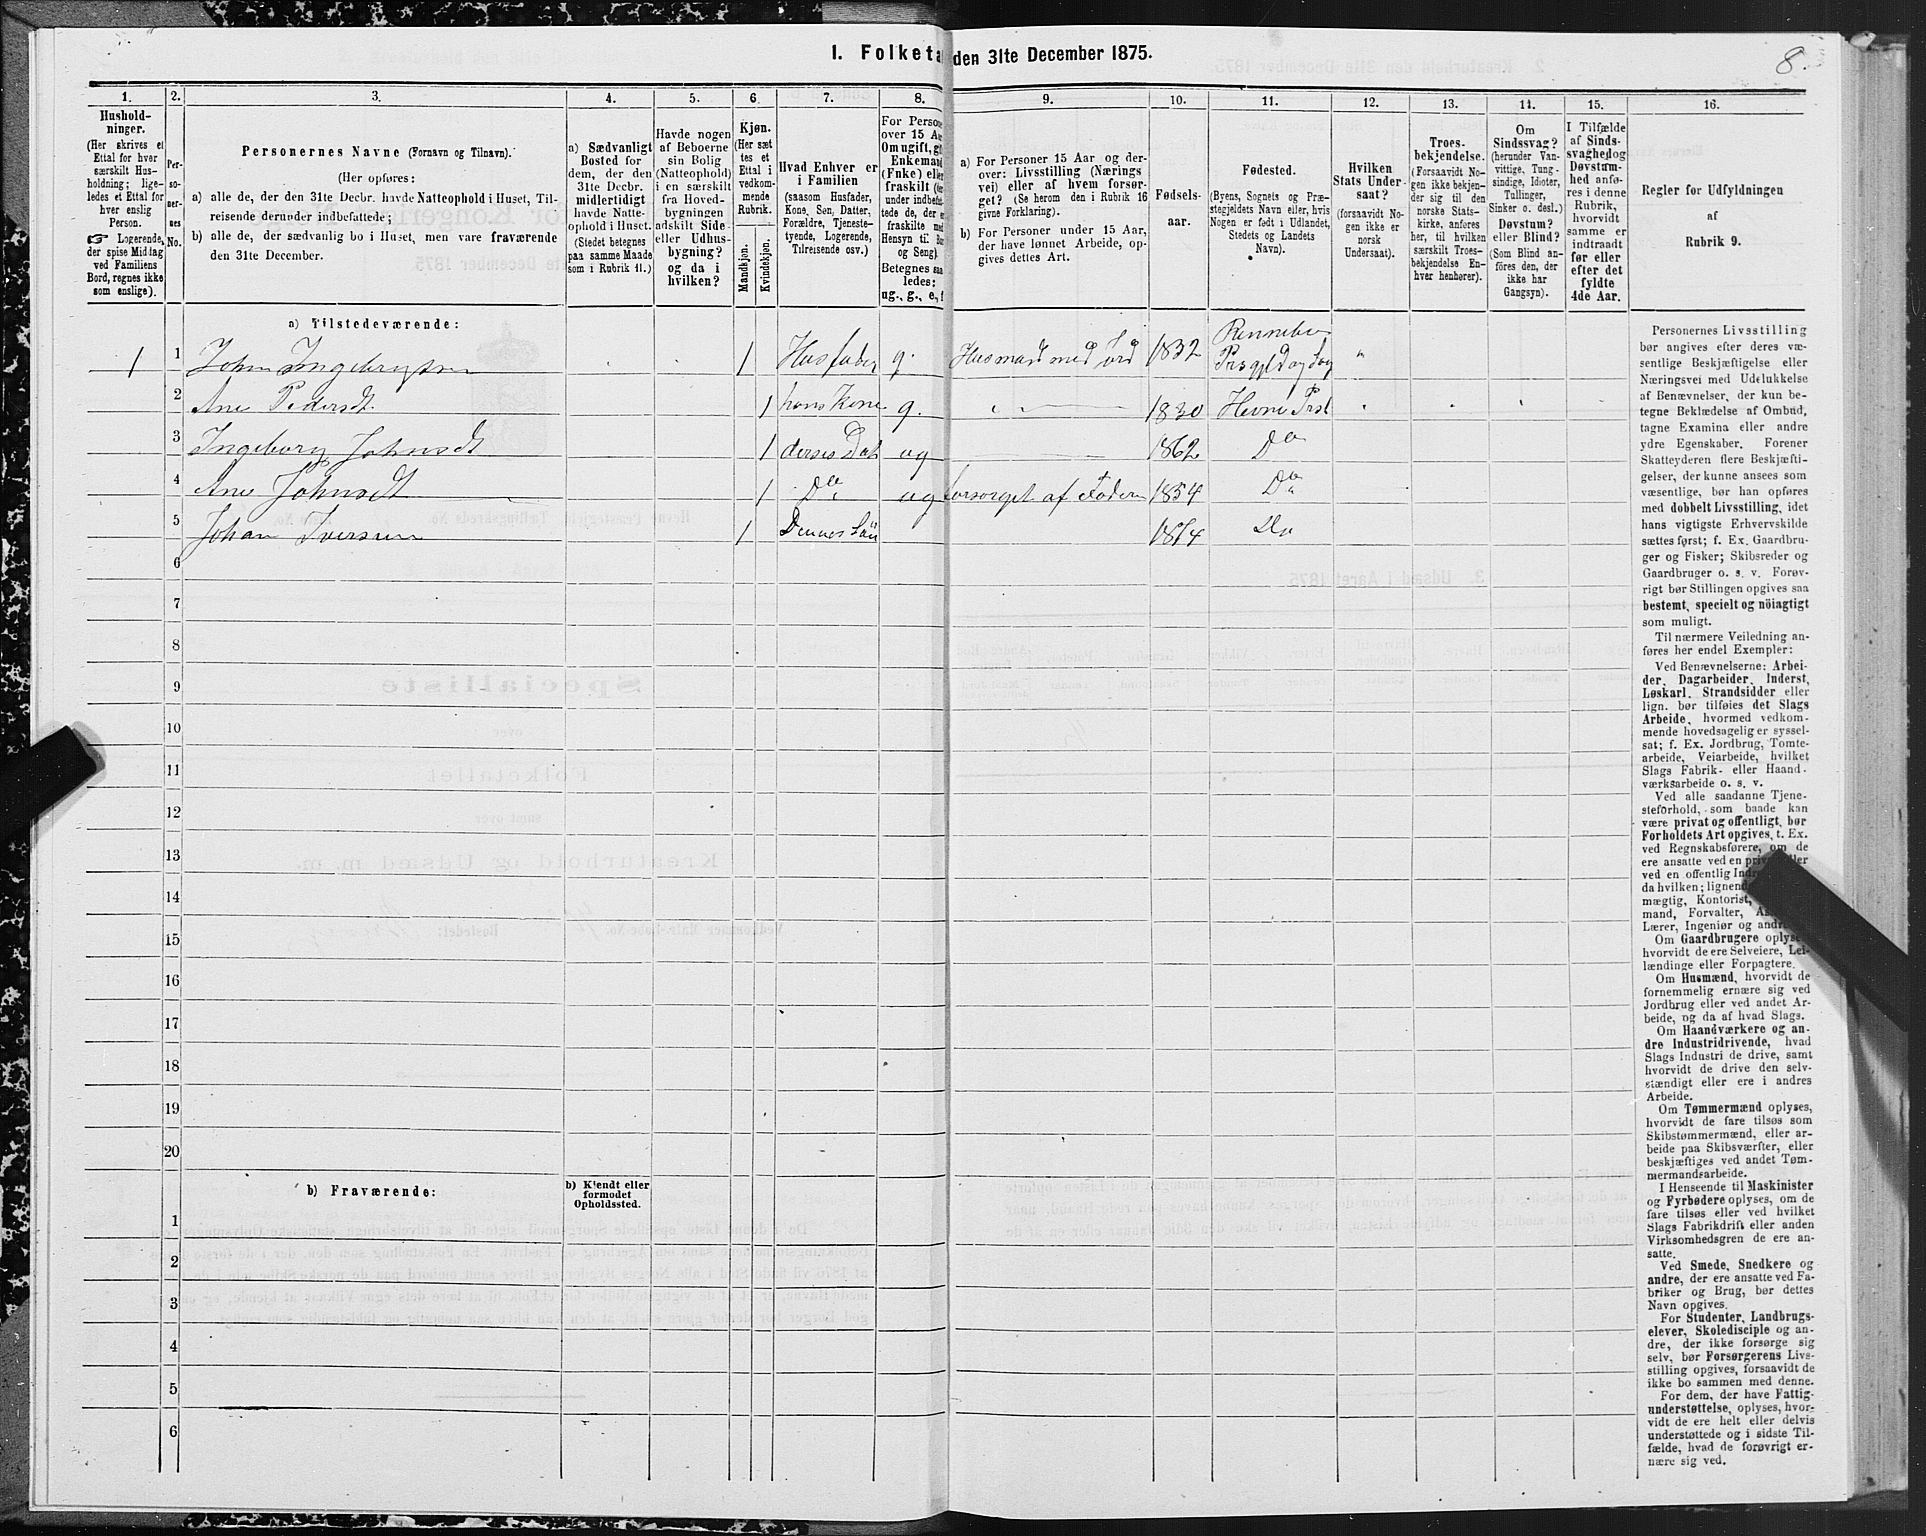 I. Folketa
den 31te December 1875.
8.
1.
Hushold-
ninger.
(Her skrives et
Ettal for hver
særskilt Hus-
holdning; lige-
ledes et Ettal for
hver enslig
Person.
☞ Logerende,
der spise Middag
ved Familiens
Bord, regnes ikke
som enslige).
2.
Per-
so-
ner-
nes
No.
3.
Personernes Navne (Fornavn og Tilnavn).
(Her opføres:
a) alle de, der den 31te Decbr. havde Natteophold i Huset, Til-
reisende derunder indbefattede;
b) alle de, der sædvanlig bo i Huset, men vare fraværende
den 31te December.
4.
a) Sædvanligt
Bosted for
dem, der den
31te Decbr.
midlertidigt
havde Natte-
ophold i Huset.
(Stedet betegnes
paa samme Maade
som i Rubrik 11.)
5.
Havde nogen
af Beboerne
sin Bolig
(Natteophold)
i en særskilt
fra Hoved-
bygningen
adskilt Side-
eller Udhus-
bygning?
og da i
hvilken?
6.
Kjøn.
(Her sæt-
tes et
Ettal i
vedkom-
mende
Rubrik.
Mandkjøn.
Kvindekjøn.
7.
Hvad Enhver er
i Familien
(saasom Husfader,
Kone, Søn, Datter,
Forældre, Tjeneste-
tyende, Logerende,
Tilreisende osv.)
8.
For Persone
over 15 Aa
Om ugift, g
Enkeman
(Enke) elle
fraskilt (he
under indbefat
tede de, der e
fraskilte med
Hensyn til Bo
og Seng).
Betegnes saa
ledes:
ug., g., e., f
9.
a) For Personer 15 Aar og der-
over: Livsstilling (Nærings
vei) eller af hvem forsør-
get? (Se herom den i Rubrik 16
givne Forklaring).
b) For Personer under 15 Aar,
der have lønnet Arbeide, op-
gives dettes Art.
10.
Fødsels-
aar.
11.
Fødested.
(Byens, Sognets og Præ-
stegjeldets Navn eller, hvis
Nogen er født i Udlandet,
Stedets og Landets
Navn).
12.
Hvilken
Stats Under-
saat?
(forsaavidt No-
gen ikke er
norsk
Undersaat).
13.
Troes-
bekjendelse.
(Forsaavidt No-
gen ikke bekjen-
der sig til den
norske Stats-
kirke, anføres
her, til hvilken
særskilt Troes-
bekjendelse En-
hver henhører).
14.
Om
Sindssvag?
(herunder Van-
vittige, Tung-
sindige, Idioter,
Tullinger,
Sinker o. desl.)
Døvstum?
eller Blind?
(Som Blind an-
føres den, der
ikke har
Gangsyn).
15.
I Tilfælde
af Sinds-
svaghed og
Døvstum-
hed anfø-
res i denne
Rubrik,
hvorvidt
samme er
indtraadt
før eller
efter det
fyldte
4de Aar.
16.
Regler for Udfyldningen
af
Rubrik 9.
a) Tilstedeværende:
1 1 John Ingebrigtsen 1 Husfader g. Husmand med Jord 1832 Rennebu
2 Ane Pedersdt 1 hans Kone g. 1830 Hevne Prst
3 Ingeborg Johnsdt 1 deres Dat ug 1862 Do
4 Ane Johnsdt 1 Do ug forsørget af Faderen 1854 Do
5 Johan Iversen 1 Dennes Sön 1874 Do
6
7
8
9
10
11
12
13
14
15
16
17
18
19
20
b) Fraværende:
b) Kjendt eller
formodet
Opholdssted.
1
2
3
4
5
6
Personernes Livsstilling
bør angives efter deres væ-
sentlige Beskjæftigelse eller
Næringsvei med Udelukkelse
af Benævnelser, der kun be-
tegne Beklædelse af Ombud,
tagne Examina eller andre
ydre Egenskaber. Forener
Skatteyderen flere Beskjæfti-
gelser, der kunne ansees som
væsentlige, bør han opføres
med dobbelt Livsstilling, idet
hans vigtigste Erhvervskilde
sættes først; f. Ex. Gaardbru-
ger og Fisker; Skibsreder og
Gaardbruger o. s. v. Forøv-
rigt bør Stillingen opgives saa
bestemt, specielt og nöiagtigt
som muligt.
Til nærmere Veiledning an-
føres her endel Exempler:
Ved Benævnelserne: Arbei-
der, Dagarbeider, Inderst,
Løskarl, Strandsidder eller
lign. bør tilføies det Slags
Arbeide, hvormed vedkom-
mende hovedsagelig er syssel-
sat; f. Ex. Jordbrug, Tomte-
arbeide, Veiarbeide, hvilket
Slags Fabrik- eller Haand-
værksarbeide o. s. v.
Ved alle saadanne Tjene-
steforhold, som baade kan
være privat og offentligt, bør
Forholdets Art opgives, t. Ex.
ved Regnskabsførere, om de
ere ansatte ved en privat eller
ved en offentlig Ind
da hvilken; lignen
mægtig, Kontorist,
mand, Forvalter, As
Lærer, Ingeniør og andre.
Om Gaardbrugere oplyses,
hvorvidt de ere Selveiere, Lei-
lændinge eller Forpagtere.
Om Husmænd, hvorvidt de
fornemmelig ernære sig ved
Jordbrug eller ved andet Ar-
beide, og da af hvad Slags.
Om Haandværkere og an-
dre Industridrivende, hvad
Slags Industri de drive, samt
hvorvidt de drive den selv-
stændigt eller ere i andres
Arbeide.
Om Tømmermænd oplyses,
hvorvidt de fare tilsøs som
Skibstømmermænd, eller ar-
beide paa Skibsværfter, eller
beskjæftiges ved andet Tøm-
mermandsarbeide.
I Henseende til Maskinister
og Fyrbødere oplyses, om de
fare tilsøs eller ved hvilket
Slags Fabrikdrift eller anden
Virksomhedsgren de ere an-
satte.
Ved Smede, Snedkere og
andre, der ere ansatte ved Fa-
briker og Brug, bør dettes
Navn opgives.
For Studenter, Landbrugs-
elever, Skoledisciple og an-
dre, der ikke forsørge sig
selv, bør Forsørgerens Livs-
stilling opgives, forsaavidt de
ikke bo sammen med denne.
For dem, der have Fattig-
understøttelse, oplyses, hvor-
vidt de ere helt eller delvis
understøttede og i sidste Til-
fælde, hvad de forøvrigt er-
nære sig ved.